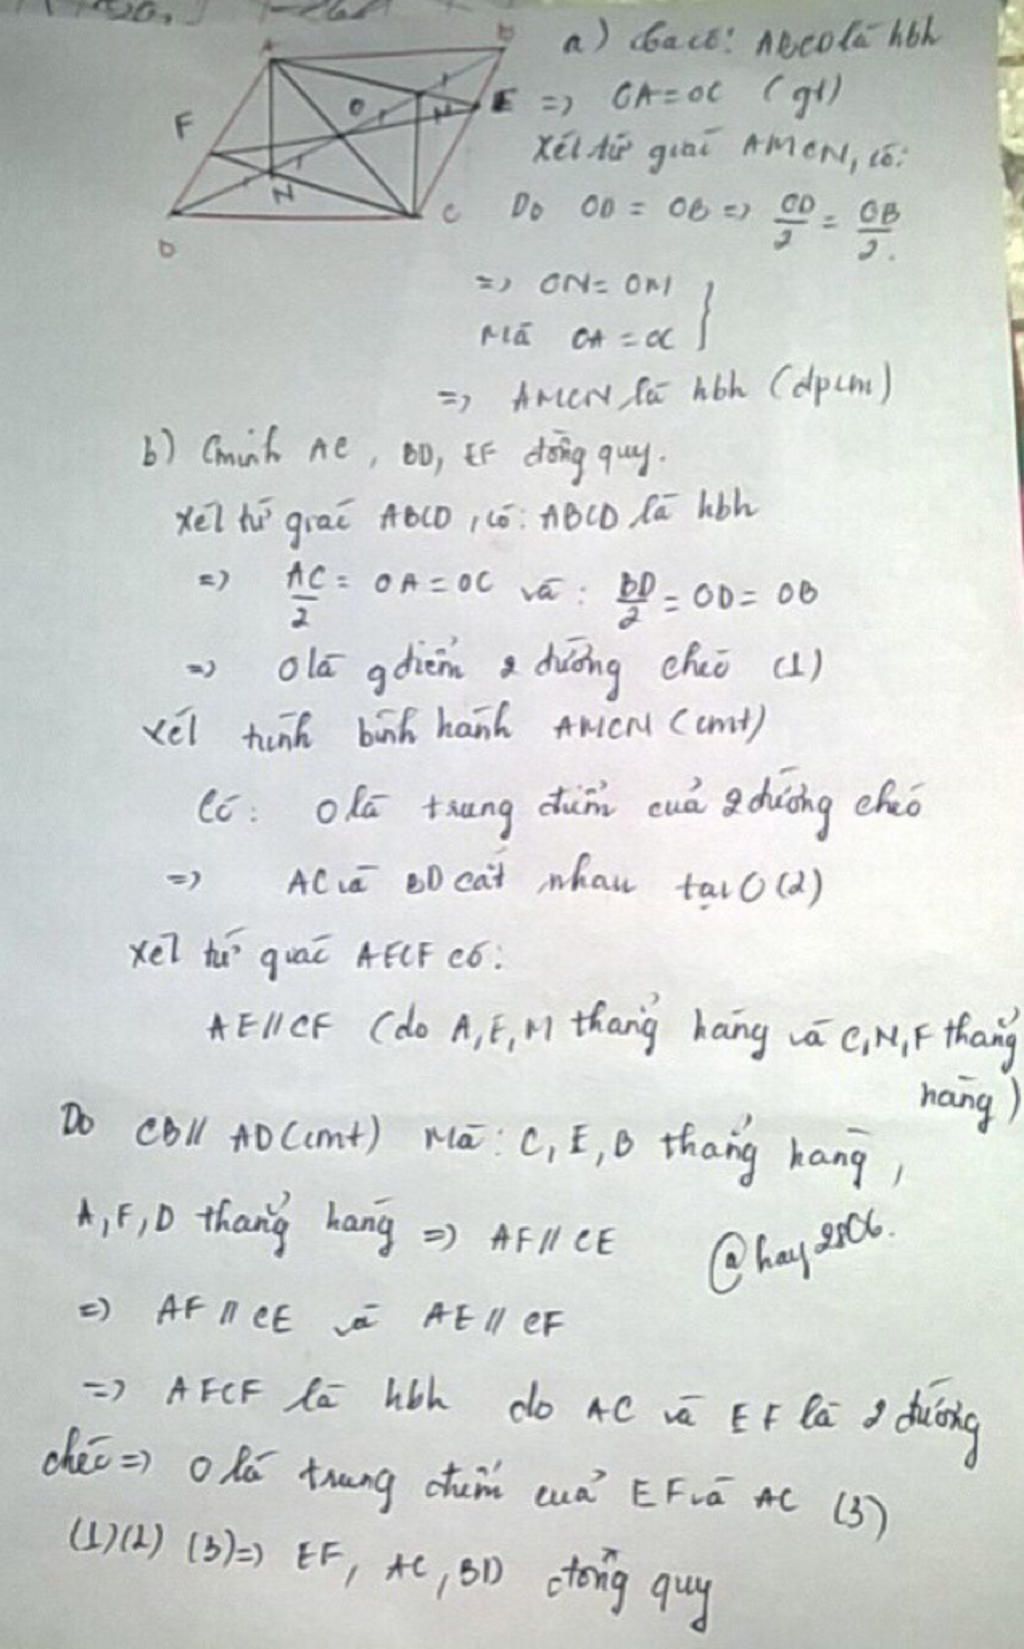 A
B
F
O
M
E
N
D
C
a) Ta có: ABCD là hbh
=> OA = OC (gt)
Xét tứ giác AMCN, có:
Do OD = OB => OD/2 = OB/2.
=> ON = OM }
Mà OA = OC
=> AMCN là hbh (đpcm)
b) Cminh AC, BD, EF đồng quy.
Xét tứ giác ABCD, có: ABCD là hbh
=> AC/2 = OA = OC và: BD/2 = OD = OB
=> O là gđiểm 2 đường chéo (1)
Xét hình bình hành AMCN (cmt)
Có: O là trung điểm của 2 đường chéo
=> AC và BD cắt nhau tại O (2)
Xét tứ giác AECF có:
AE // CF (do A, E, M thẳng hàng và C, N, F thẳng
hàng)
Do CB // AD (cmt) Mà: C, E, B thẳng hàng,
A, F, D thẳng hàng => AF // CE
@hay2806.
=> AF // CE và AE // CF
=> AECF là hbh do AC và EF là 2 đường
chéo => O là trung điểm của EF và AC (3)
(1)(2) (3) => EF, AC, BD đồng quy